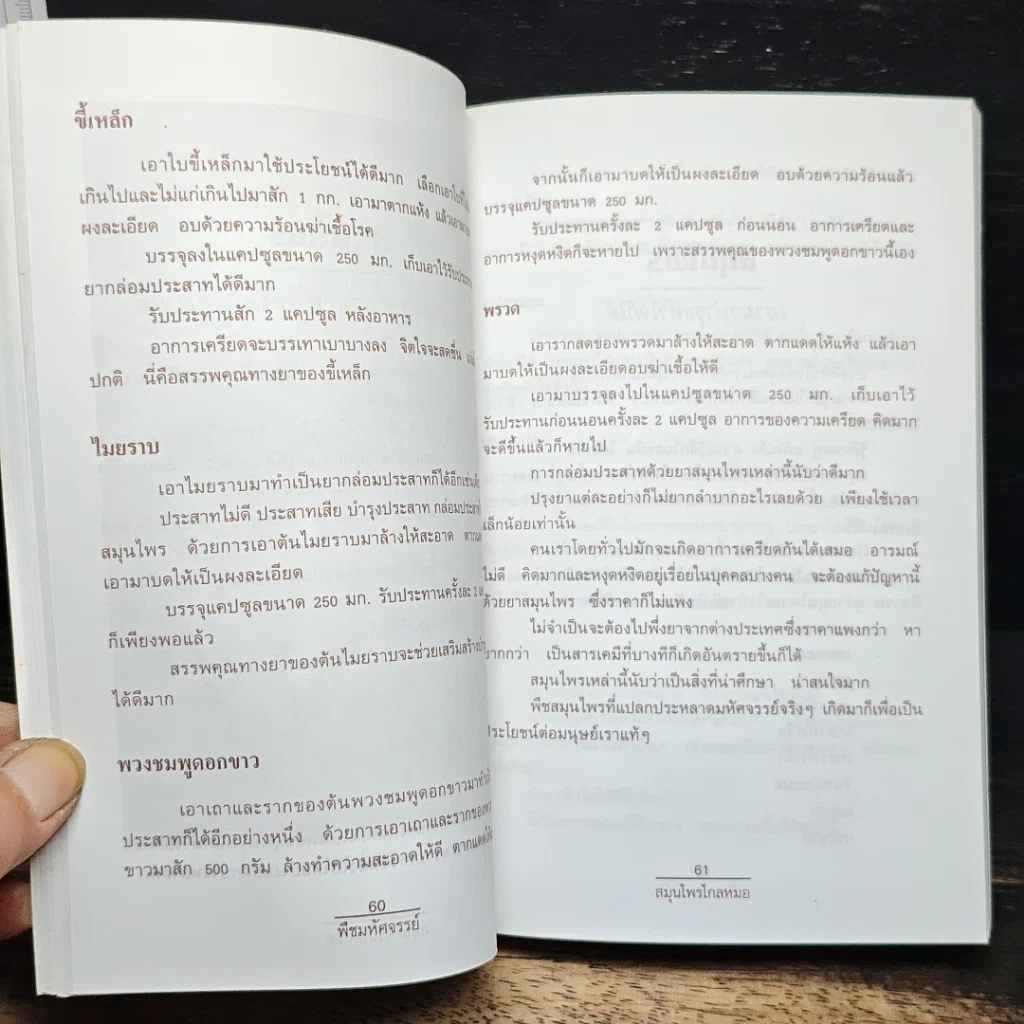 ขี้เหล็ก
เอาใบขี้เหล็กมาใช้ประโยชน์ได้ดีมาก เลือกเอาใบที่
เกินไปและไม่แก่เกินไปมาสัก 1 กก. เอามาตากแห้ง แล้วเอามา
ผงละเอียด อบด้วยความร้อนฆ่าเชื้อโรค
บรรจุลงในแคปซูลขนาด 250 มก. เก็บเอาไว้รับประ
ยากล่อมประสาทได้ดีมาก
รับประทานสัก 2 แคปซูล หลังอาหาร
อาการเครียดจะบรรเทาเบาบางลง จิตใจจะสดชื่น
ปกติ นี่คือสรรพคุณทางยาของขี้เหล็ก
ไมยราบ
เอาไมยราบมาทำเป็นยากล่อมประสาทก็ได้อีกเช่น
ประสาทไม่ดี ประสาทเสีย บำรุงประสาท กล่อมประสา
สมุนไพร ด้วยการเอาต้นไมยราบมาล้างให้สะอาด
เอามาบดให้เป็นผงละเอียด
บรรจุแคปซูลขนาด 250 มก. รับประทานครั้งละ 2
ก็เพียงพอแล้ว
สรรพคุณทางยาของต้นไมยราบจะช่วยเสริมสร้าง
ได้ดีมาก
พวงชมพูดอกขาว
เอาเถาและรากของต้นพวงชมพูดอกขาวมาทำ
ประสาทก็ได้อีกอย่างหนึ่ง ด้วยการเอาเถาและรากของ
ขาวมาสัก 500 กรัม ล้างทำความสะอาดให้ดี ตากแดด
60
พืชมหัศจรรย์
จากนั้นก็เอามาบดให้เป็นผงละเอียด อบด้วยความร้อนแล้ว
บรรจุแคปซูลขนาด 250 มก.
รับประทานครั้งละ 2 แคปซูล ก่อนนอน อาการเครียดและ
อาการหงุดหงิดก็จะหายไป เพราะสรรพคุณของพวงชมพูดอกขาวนี้เอง
พรวด
เอารากสดของพรวดมาล้างให้สะอาด ตากแดดให้แห้ง แล้วเอา
มาบดให้เป็นผงละเอียดอบฆ่าเชื้อให้ดี
เอามาบรรจุลงไปในแคปซูลขนาด 250 มก. เก็บเอาไว้
รับประทานก่อนนอนครั้งละ 2 แคปซูล อาการของความเครียด คิดมาก
จะดีขึ้นแล้วก็หายไป
การกล่อมประสาทด้วยยาสมุนไพรเหล่านี้นับว่าดีมาก
ปรุงยาแต่ละอย่างก็ไม่ยากลำบากอะไรเลยด้วย เพียงใช้เวลา
เล็กน้อยเท่านั้น
คนเราโดยทั่วไปมักจะเกิดอาการเครียดกันได้เสมอ อารมณ์
ไม่ดี คิดมากและหงุดหงิดอยู่เรื่อยในบุคคลบางคน จะต้องแก้ปัญหานี้
ด้วยยาสมุนไพร ซึ่งราคาก็ไม่แพง
ไม่จำเป็นจะต้องไปพึ่งยาจากต่างประเทศซึ่งราคาแพงกว่า หา
ยากกว่า เป็นสารเคมีที่บางทีก็เกิดอันตรายขึ้นก็ได้
สมุนไพรเหล่านี้นับว่าเป็นสิ่งที่น่าศึกษา น่าสนใจมาก
พืชสมุนไพรที่แปลกประหลาดมหัศจรรย์จริงๆ เกิดมาก็เพื่อเป็น
ประโยชน์ต่อมนุษย์เราแท้ๆ
61
สมุนไพรไกลหมอ